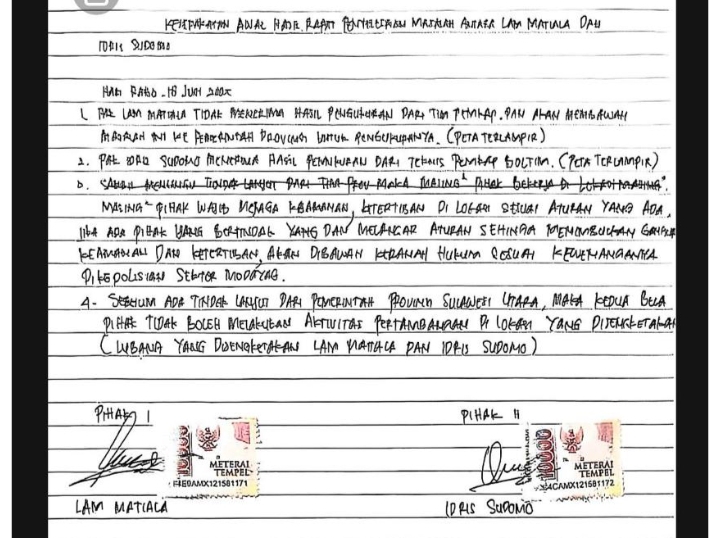 KESEPAKATAN AWAL HASIL RAPAT PENYELESAIAN MASALAH ANTARA LAM MATIALA DAN
IDRIS SUDOMO
HARI RABO - 18 JUNI 202
1. PAK LAM MATIALA TIDAK MENERIMA HASIL PENGUKURAN DARI TIM PEMKAP. DAN AKAN MEMBAWAH
MASALAH INI KE PEMERINTAH PROVINSI UNTUK PENGUKURANYA. (PETA TERLAMPIR)
2. PAK IDRIS SUDOMO MENERIMA HASIL DARI TEKNIS PEMKAP BOLTIM. (PETA TERLAMPIR)
3. SAMBIL MENUNGU TINDAK LANJUT DARI TIM PROV MAKA MASING² PIHAK BEKERJA DI LOKASI MASING²
MASING² PIHAK WAJIB MENJAGA KEAMANAN, KETERTIBAN DI LOKASI SESUAI ATURAN YANG ADA.
JIKA ADA PIHAK YANG BERTINDAK YANG DAN MELANGAR ATURAN SEHINGA MENIMBULKAN
KEAMANAN DAN KETERTIBAN, AKAN DIBAWAH KERANAH HUKUM SESUAI KEWENANGANYA
DIKEPOLISIAN SEKTOR MODAYAG.
4- SEBELUM ADA TINDAK LANJUT DARI PEMERINTAH PROVINSI SULAWESI UTARA, MAKA KEDUA BELA
PIHAK TIDAK BOLEH MELAKUKAN AKTIVITAS PERTAMBANGAN DI LOKASI YANG DISENGKETAKAN
( LUBANG YANG DISENGKETAKAN LAM MATIALA DAN IDRIS SUDOMO )
PIHAK I
PIHAK II
10000
METERAI
TEMPEL
E4E0AMX121581171
10000
METERAI
TEMPEL
4CAMX121581172
LAM MATIALA
IDRIS SUDOMO